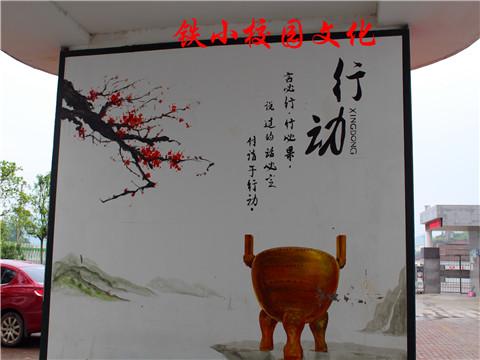 铁小校园文化
行动
XINGDONG
言必行，行必果，
说过的话必定
付诸于行动。